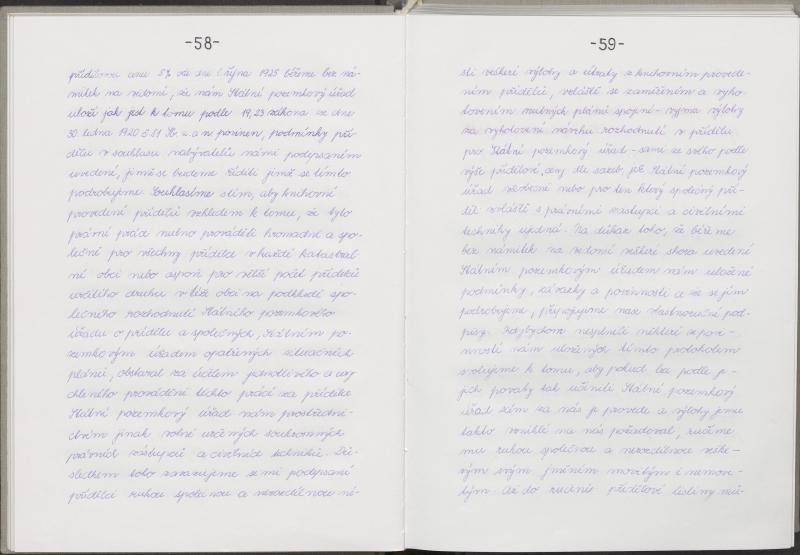 -58-
přídělovou cenu 5% ode dne 1. října 1925 běřeme bez ná-
mitek na vědomí, že nám Státní pozemkový úřad
uloží jak jest k tomu podle 19, 23 zákona ze dne
30. ledna 1920 č. 81 Sb. z. a n. povinen, podmínky pří-
dělu v souhlasu nabyvatelů námi podepsaném
uvedené, jimiž se budeme říditi jimž se tímto
podrobujeme. Souhlasíme s tím, aby knihovní
provedení přídělů vzhledem k tomu, že tyto
právní práce nutno prováděti hromadně a spo-
lečně pro všechny příděly v každé katastrál
ní obci nebo aspoň pro větší počet přídělů
určitého druhu v téže obci na podkladě spo-
lečného rozhodnutí Státního pozemkového
úřadu o přídělu a společných, Státním po-
zemkovým úřadem opatřených situačních
plánů, obstaral za účelem jednotlivého a ury
chleného provádění těchto prací za příděle
Státní pozemkový úřad nám prostředni-
ctvím jinak volně určených soukromných
právních zástupců a civilních techniků. Dů-
sledkem toho zavazujeme se mi podepsaní
přídělci rukou společnou a nerozdílnou né-
-59-
sti veškeré výlohy a útraty s knihovním provede-
ním přídělů, zvláště se zaměřením a vyho-
tovením nutných plánů spojné - vyjma výlohy
za vyhotovení návrhu rozhodnutí v přídělu
pro Státní pozemkový úřad - sami ze svého podle
výše přídělové ceny dle sazeb, jež Státní pozemkový
úřad všeobecně nebo pro ten který společný pří-
děl zvláště s právními zástupci a civilními
techniky ujedná. Na důkaz toho, že běřeme
bez námitek na vědomí veškeré shora uvedené
Státním pozemkovým úřadem nám uložené
podmínky, závazky a povinnosti a že se jim
podrobujeme, připojujeme naše vlastnoruční pod-
pisy. Kdybychom nesplnili některé z povi-
nností nám uložených tímto protokolem
svolujeme k tomu, aby pokud lze podle je-
jich povahy tak učiniti Státní pozemkový
úřad sám za nás je provede a výlohy jemu
takto vzniklé na nás požadoval, ručíme
mu rukou společnou a nerozdílnou veške-
rým svým jměním movitým i nemovi-
tým. Až do přídělové listiny